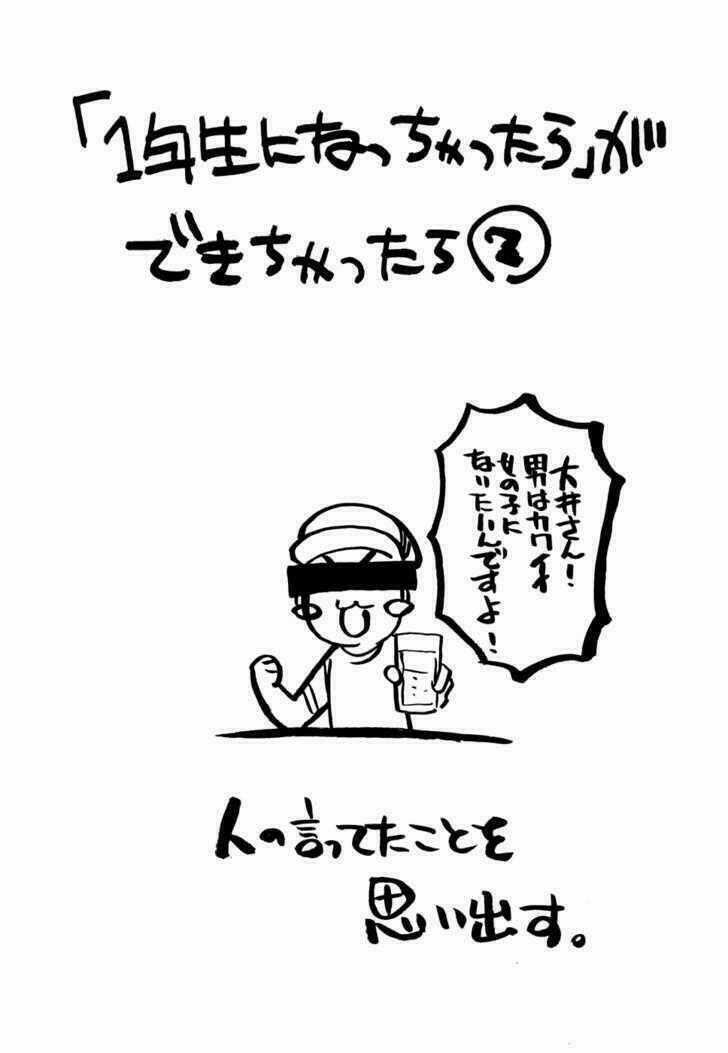 「1年生になっちゃったら」が
できちゃったら②
大井さん!
男はカワイイ
女の子に
なりたいんですよ!
人の言ってたことを
思い出す。